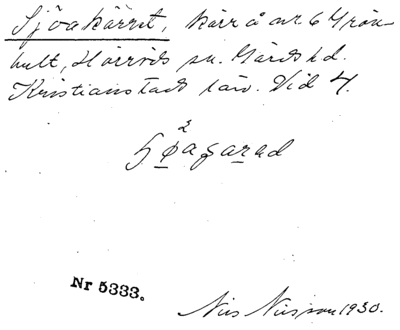 Sjöakärret, kärr å nr 6 Grön-
hult, Hörröds sn. Gärds hd.
Kristianstads län. Vid 4.
Nr 5333.
Nils Nilsson 1930.